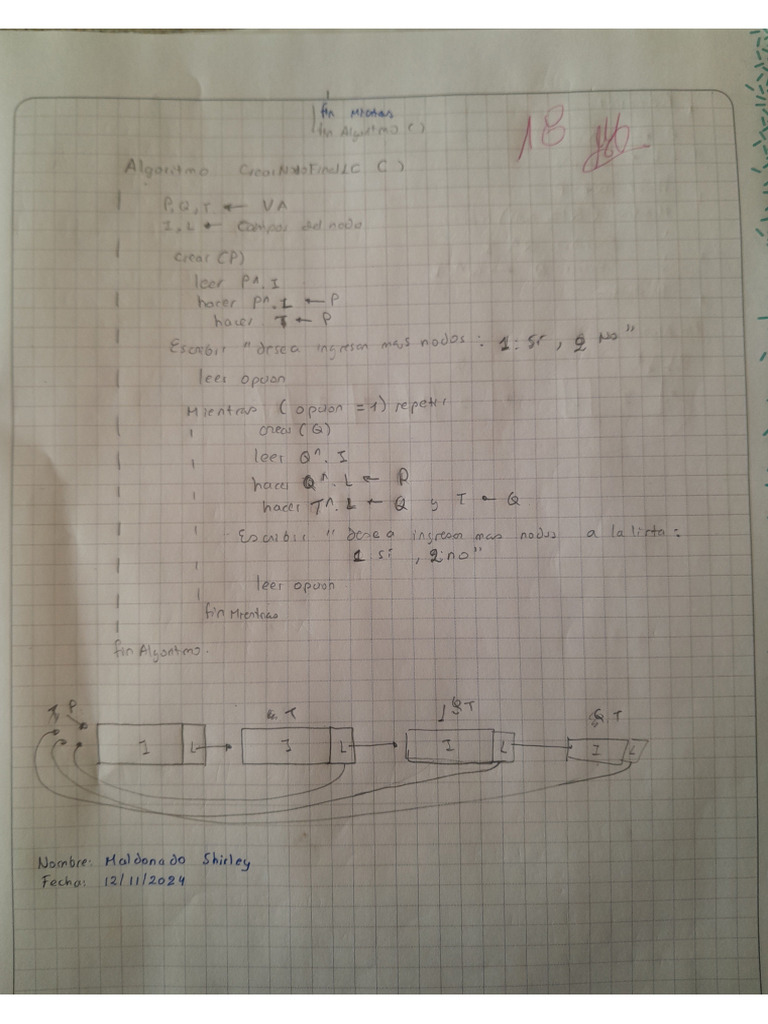 fin Mientras
fin Algoritmo ( )
18
Algoritmo CrearNodoFinalLC ( )
P, Q, T ← VA
I, L ← Campos del nodo
crear (P)
leer P^. I
hacer P^. L ← P
hacer T ← P
Escribir "desea ingresar mas nodos : 1: Si , 2 No"
leer opcion
Mientras ( opcion = 1) repetir
crear (Q)
leer Q^. I
hacer Q^. L ← P
hacer T^. L ← Q y T ← Q
Escribir " desea ingresar mas nodos a la lista :
1 si , 2: no"
leer opcion
fin Mientras
fin Algoritmo.
P T Q T Q, T
I L I L I L I L
Nombre: Maldonado Shirley
Fecha: 12/11/2024